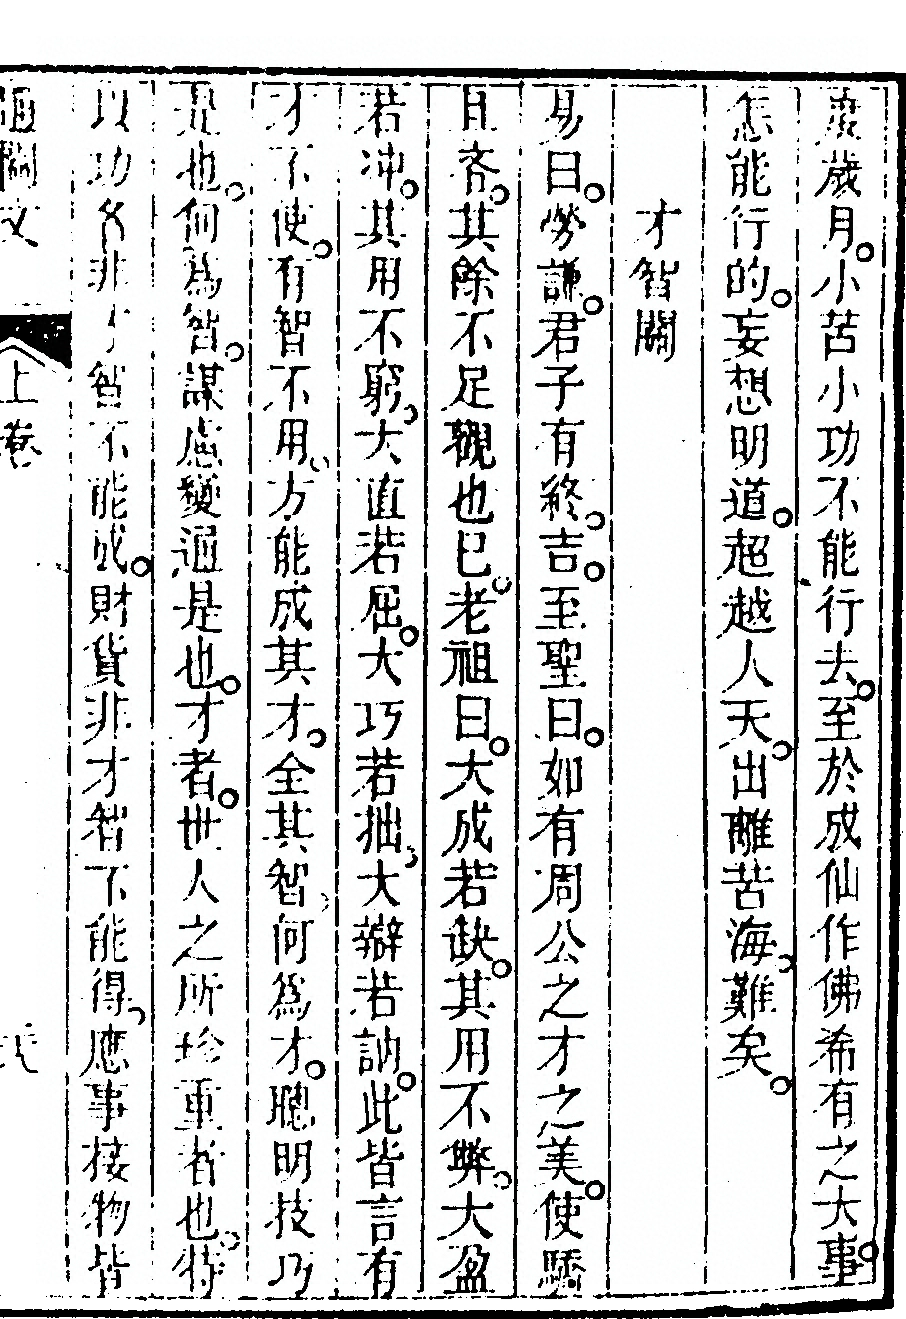 度歲月。小苦小功不能行去。至於成仙作佛希有之大事。
怎能行的。妄想明道。超越人天。出離苦海。難矣。
才智關
易曰。勞謙。君子有終。吉。至聖曰。如有周公之才之美。使驕
且吝。其餘不足觀也已。老祖曰。大成若缺。其用不弊。大盈
若冲。其用不窮。大直若屈。大巧若拙。大辯若訥。此皆言有
才不使。有智不用。方能成其才。全其智。何為才。聰明技巧
是也。何為智。謀慮變通是也。才者。世人之所珍重者也。特
以功名非才智不能成。財貨非才智不能得。應事接物皆
通關文
上卷